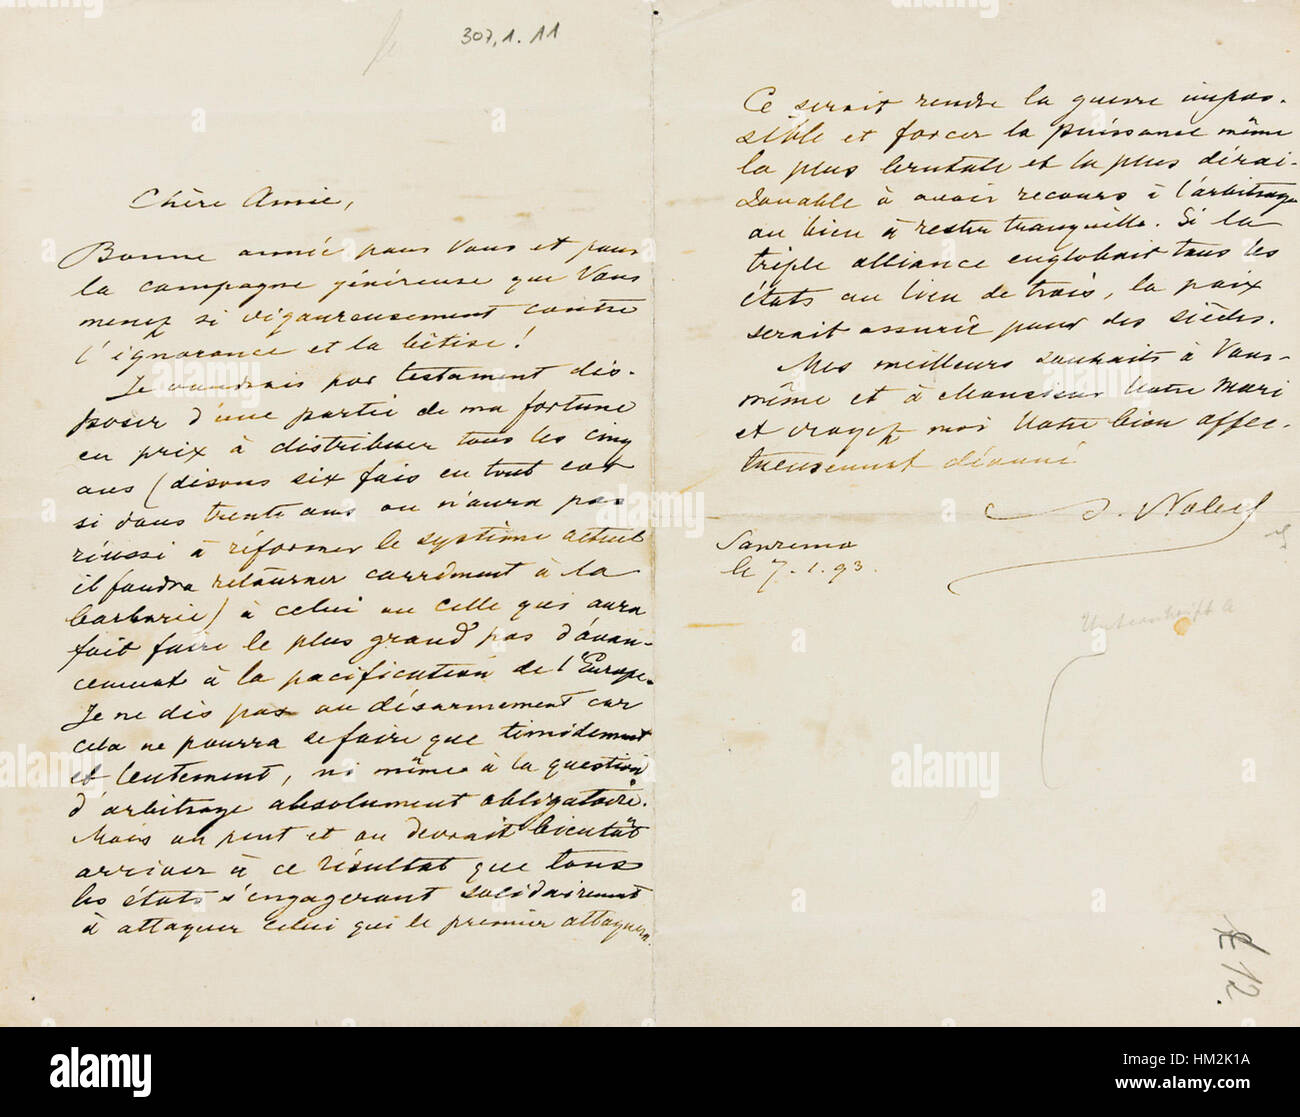 307,1.11
Chère Amie,
Bonne année pour Vous et pour
la campagne généreuse que Vous
menez si vigoureusement contre
l'ignorance et la bêtise!
Je voudrais par testament dis-
poser d'une partie de ma fortune
en prix à distribuer tous les cinq
ans (disons six fois en tout car
si dans trente ans on n'aura pas
réussi à réformer le système actuel
il faudra retourner carrément à la
barbarie) à celui ou celle qui aura
fait faire le plus grand pas d'avan-
cement à la pacification de l'Europe.
Je ne dis pas au désarmement car
cela ne pourra se faire que timidement
et lentement, ni même à la question
d'arbitrage absolument obligatoire.
Mais on peut et on devrait bientôt
arriver à ce résultat que tous
les états s'engageront solidairement
à attaquer celui qui le premier attaquera.
Ce serait rendre la guerre impos-
sible et forcer la puissance même
la plus brutale et la plus dérai-
sonnable à avoir recours à l'arbitrage
ou bien à rester tranquille. Si la
triple alliance englobait tous les
états au lieu de trois, la paix
serait assurée pour des siècles.
Mes meilleurs souhaits à Vous-
même et à Monsieur Votre Mari
et croyez moi Votre bien affec-
tueusement dévoué
A. Nobel
Sanremo
le 7.1.93.
Unterschrift A
K 12.
alamy
alamy
HM2K1A
www.alamy.com